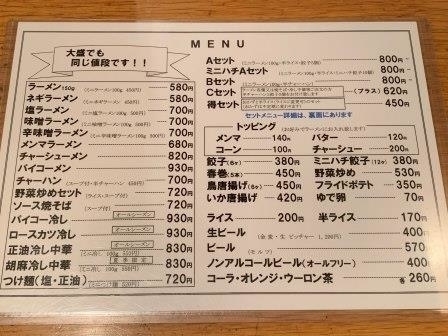 MENU
大盛でも
同じ値段です！！
ラーメン150g 580円
ネギラーメン 580円
塩ラーメン 700円
味噌ラーメン 700円
辛味噌ラーメン 700円
メンマラーメン 680円
チャーシューメン 820円
パイコーメン 930円
チャーハン 700円
野菜炒めセット 720円
ソース焼そば 720円
パイコー冷し オールシーズン 930円
ロースカツ冷し オールシーズン 930円
正油冷し中華 830円
胡麻冷し中華 830円
つけ麺（塩・正油） 720円
Aセット 800円
ミニハチAセット 800円
Bセット 800円
Cセット （プラス）620円
得セット 450円
セットメニュー詳細は、裏面にあります
トッピング
メンマ 140円 バター 120円
コーン 100円 チャーシュー 200円
餃子（6ヶ） 380円 ミニハチ餃子（12ヶ） 380円
春巻（5本） 450円 野菜炒め 530円
鳥唐揚げ（6ヶ） 450円 フライドポテト 350円
いか唐揚げ 420円 ゆで卵 70円
ライス 200円 半ライス 170円
生ビール 400円
ビール 570円
ノンアルコールビール（オールフリー） 400円
コーラ・オレンジ・ウーロン茶 各 260円